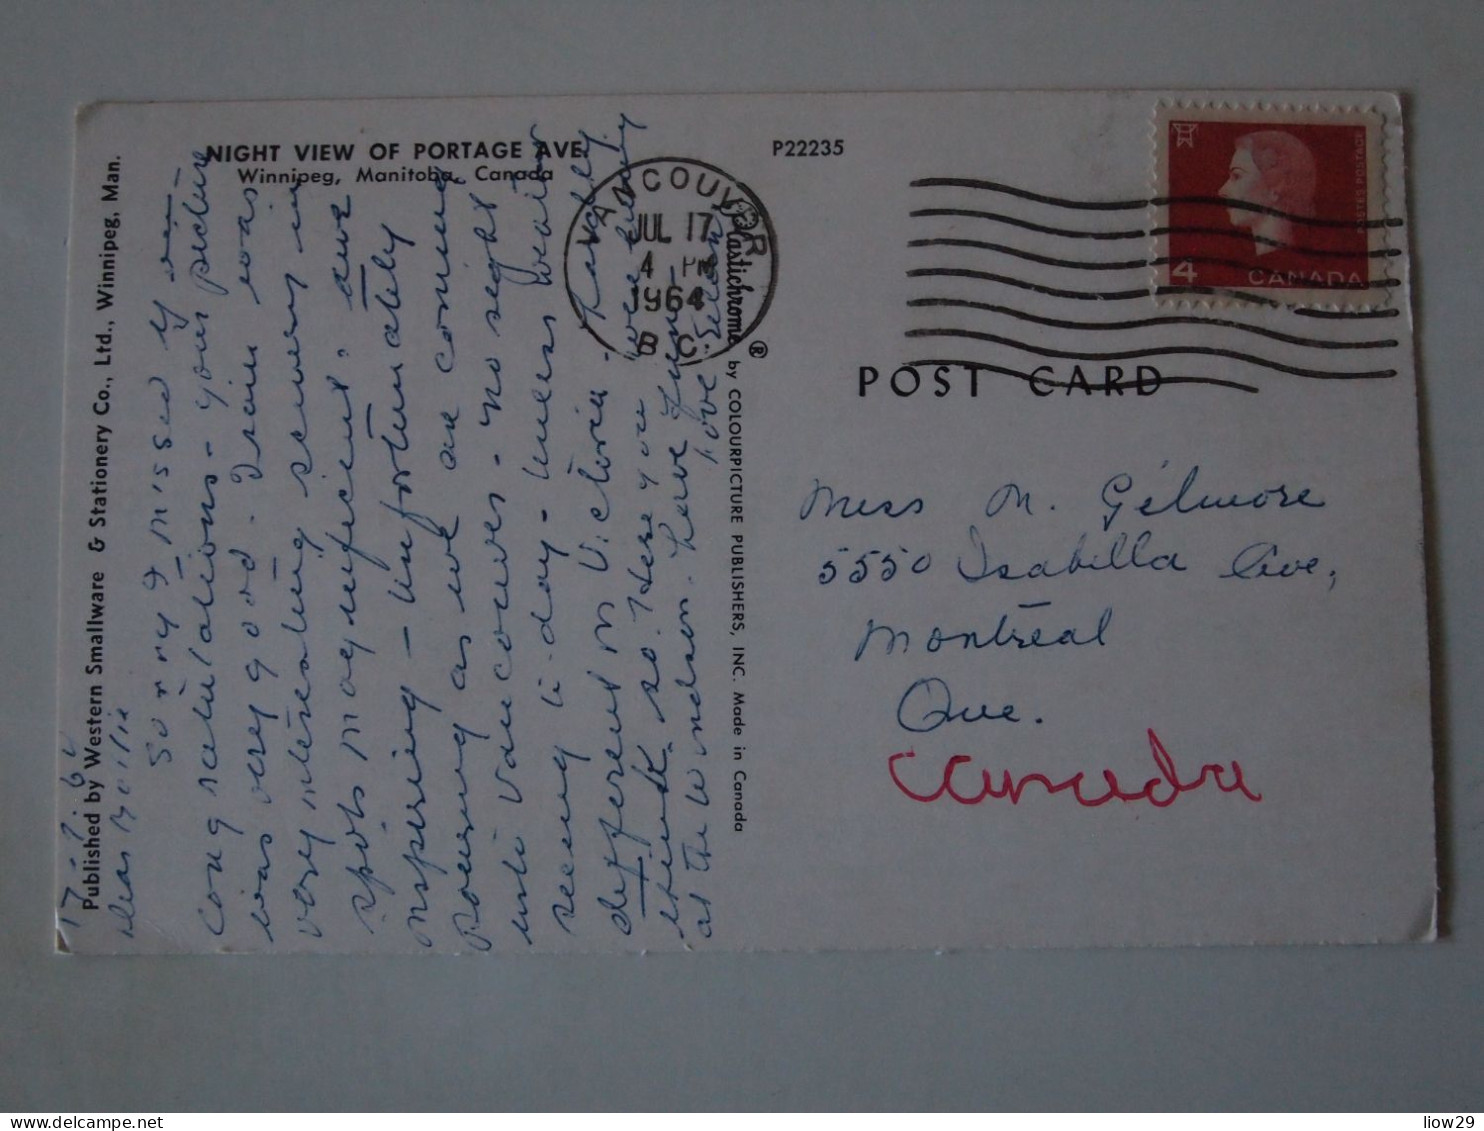 NIGHT VIEW OF PORTAGE AVE.
Winnipeg, Manitoba, Canada
P22235
VANCOUVER
JUL 17
4 PM
1964
B.C.
4
CANADA
POSTES POSTAGE
POST CARD
Published by Western Smallware & Stationery Co., Ltd., Winnipeg, Man.
Plastichrome ® by COLOURPICTURE PUBLISHERS, INC. Made in Canada
17-7-64
Dear Mollie
Sorry I missed
congratulations - your picture
was very good. Train was
very interesting scenery in
spots magnificent, awe
inspiring - Unfortunately
Pouring as we are coming
into Vancouver. No sight
seeing to-day - unless weather
different in Victoria.
think so. Here you
at the Windsor. have fun
love
Miss M. Gilmore
5550 Isabella Ave,
Montreal
Que.
Canada
delcampe.net
liow29